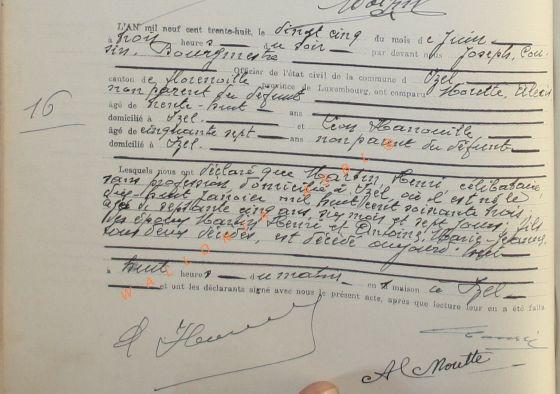 L'AN mil neuf cent trente-huit, le vingt cinq du mois de Juin
à trois heures du soir par devant nous Joseph, Cou
sin, Bourgmestre
Officier de l'état civil de la commune d'Izel
canton de Florenville province de Luxembourg, ont comparu Morette, Alexis
non parent du défunt
âgé de trente-huit ans
domicilié à Izel et Léon
âgé de cinquante sept ans non parent du défunt
domicilié à Izel
16
Lesquels nous ont déclaré que Martin Henri, célibataire,
sans profession, domicilié à Izel, où il est né le
dix-huit mil huit cent soixante trois
âgé de septante cinq ans, mois et sept jours, fils
des époux Martin Henri et Antoine, Marie-Jeanne,
tous deux décédés, est décédé aujourd'hui
à huit heures du matin en sa maison à Izel
et ont les déclarants signé avec nous le présent acte, après que lecture leur en a été faite.
Al Morette
WALLONIE ASBL